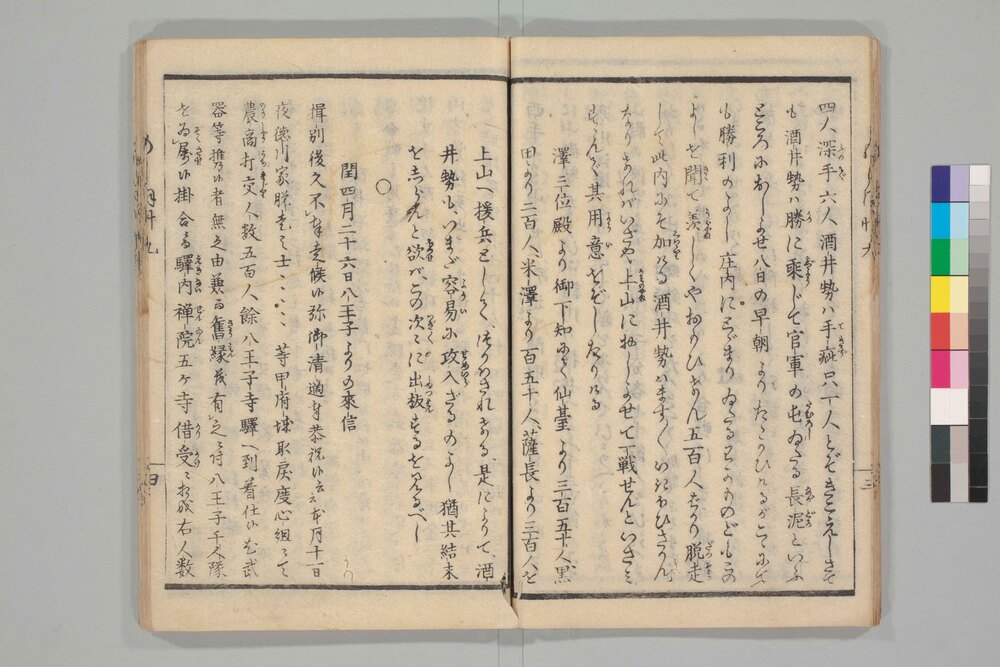 四人深手六人酒井勢ハ手疵只一人とぞきこえしさて
も酒井勢ハ勝に乗じて官軍の屯ゐたる長泥といふ
ところにおしよせ八日の早朝よりたゝかひけるがこゝにて
も勝利のよし庄内にとゞまりゐたるものゝのどもこの
よしを聞て羨しくやおもひけん五百人ばかり脱走
して此内にぞ加ける酒井勢ハますくいきほひさかん
なりければいざや上山におしよせて一戦せんといさみ
すゝんで其用意をぞしたりける
澤三位殿より御下知にて仙臺より三百五十人黒
田より二百人米澤より百五十人薩長より三百人を
上山へ援兵としてつかわされける是によりて酒
井勢もいまだ容易に攻入ざるのよし猶其結末
をしらんと欲バこの次〻に出板するを見るべし
○
閏四月二十六日八王子よりの來信
揖別後久不奉走候弥御清適奉恭祝候云云本月十一日
夜徳川家脱走之士……等甲府城取戻度心組ニて
農商打交人数五百人餘八王子寺驛へ到着仕候尤武
器等携候者無之由兼而舊縁茂有之ニ付八王子千人隊
を為属掛合而驛内禅院五ケ寺借受ニ相成右人数